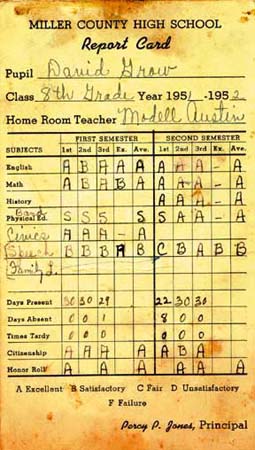 MILLER COUNTY HIGH SCHOOL
Report Card
Pupil David Grow
Class 8th Grade Year 1951-1952
Home Room Teacher Modell Austin
FIRST SEMESTER SECOND SEMESTER
SUBJECTS 1st 2nd 3rd Ex. Ave. 1st 2nd 3rd Ex. Ave.
English A B A A A A A A - A
Math A B A B A A A A - A
History A A A - A
Band
Physical Ed. S S S S S A A - A
Civics A A A - A
Speech B B B A B C B A B B
Family L.
Days Present 30 30 29 22 30 30
Days Absent 0 0 1 8 0 0
Times Tardy 0 0 0 0 0 0
Citizenship A A A A A B A
Honor Roll A A A A A A A
A Excellent B Satisfactory C Fair D Unsatisfactory
F Failure
Percy P. Jones, Principal